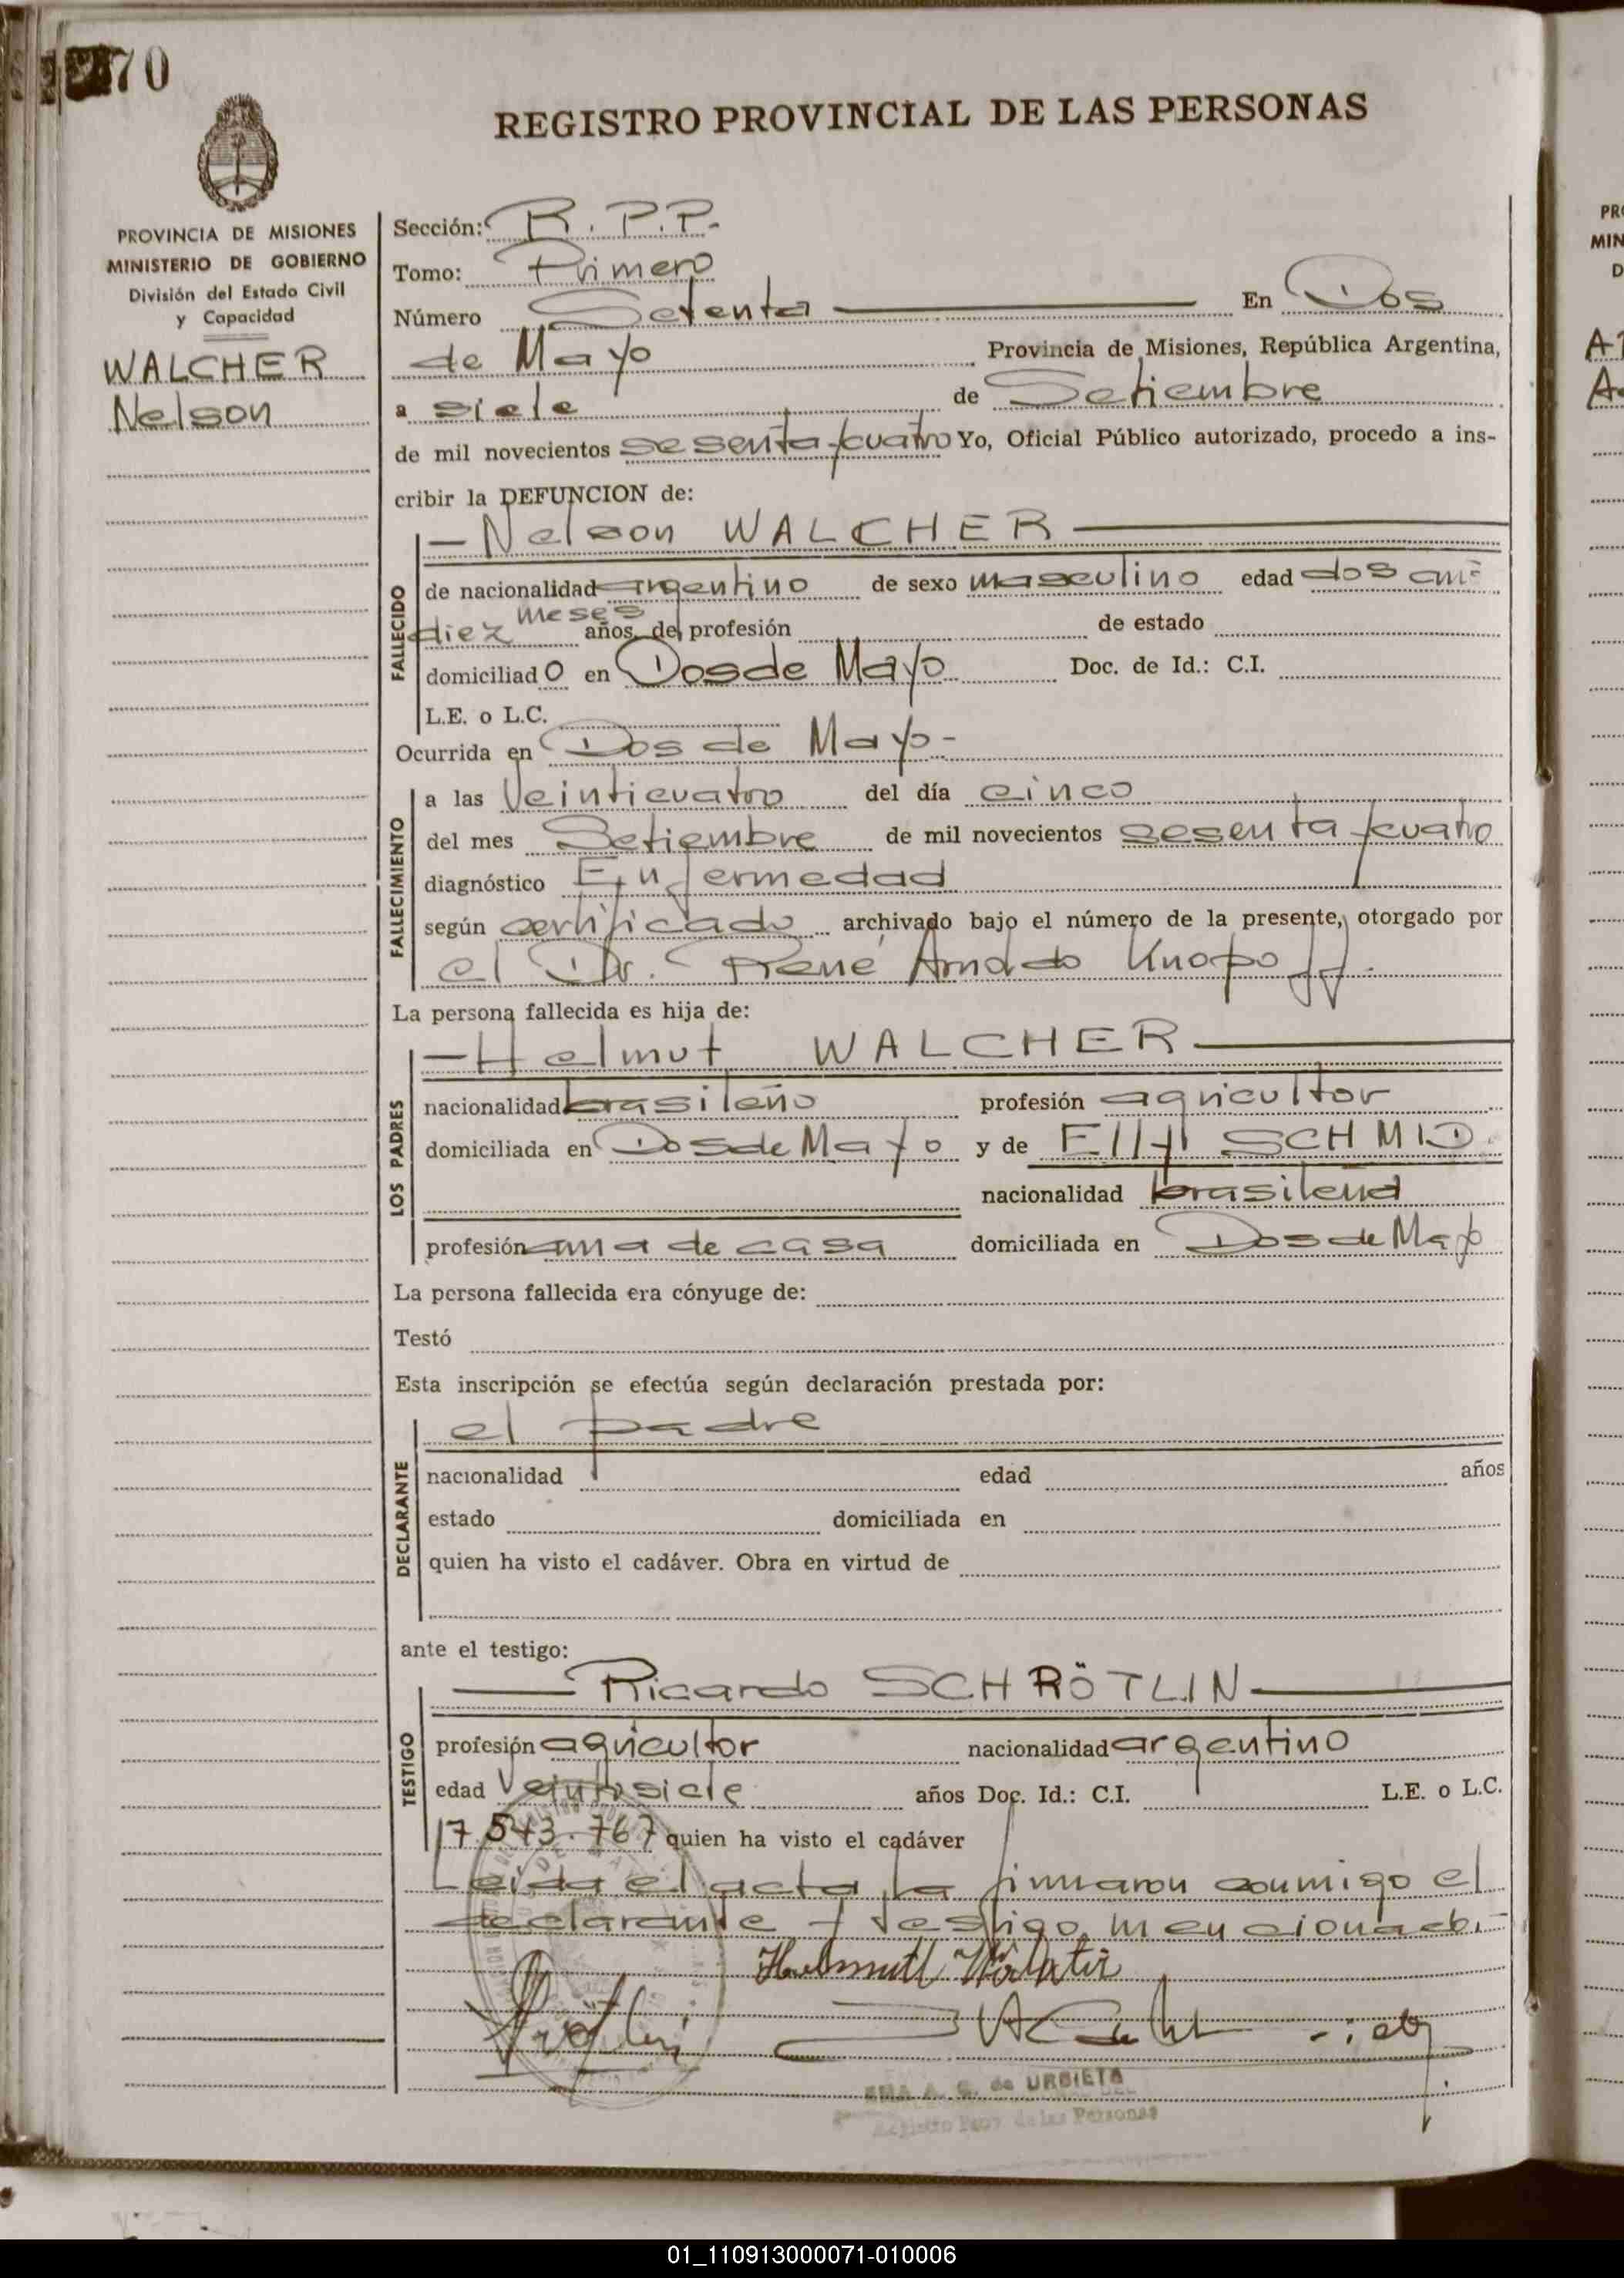 70
REGISTRO PROVINCIAL DE LAS PERSONAS
PROVINCIA DE MISIONES
MINISTERIO DE GOBIERNO
División del Estado Civil
y Capacidad
WALCHER
Nelson
Sección: R. P.P.
Tomo: Primero
Número Setenta En Dos
de Mayo Provincia de Misiones, República Argentina,
a siete de Setiembre
de mil novecientos sesenta y cuatro Yo, Oficial Público autorizado, procedo a ins-
cribir la DEFUNCION de:
FALLECIDO
— Nelson WALCHER
de nacionalidad argentino de sexo masculino edad dos
diez meses años, de profesión de estado
domiciliado en Dos de Mayo Doc. de Id.: C.I.
L.E. o L.C.
Ocurrida en Dos de Mayo-
FALLECIMIENTO
a las Veinticuatro del día cinco
del mes Setiembre de mil novecientos sesenta y cuatro
diagnóstico Enfermedad
según certificado archivado bajo el número de la presente, otorgado por
el Dr. René Arnoldo Knopoff.
La persona fallecida es hija de:
LOS PADRES
— Helmut WALCHER
nacionalidad brasileño profesión agricultor
domiciliada en Dos de Mayo y de Elly SCHMID.
nacionalidad brasileña
profesión ama de casa domiciliada en Dos de Mayo
La persona fallecida era cónyuge de:
Testó
Esta inscripción se efectúa según declaración prestada por:
DECLARANTE
el padre
nacionalidad edad años
estado domiciliada en
quien ha visto el cadáver. Obra en virtud de
ante el testigo:
TESTIGO
Ricardo SCHRÖTLIN
profesión agricultor nacionalidad argentino
edad Veintisiete años Doc. Id.: C.I. L.E. o L.C.
17.543.767 quien ha visto el cadáver
Leida el acta, la firmaron conmigo el
declarante y testigo mencionado.
Helmutt
A. G. de URBIETA
Registro Prov. de las Personas
PR
MIN
D
01_110913000071-010006